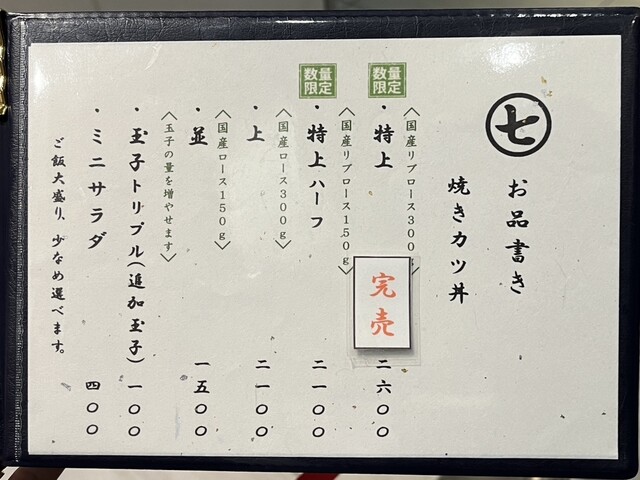 七
お品書き
焼きカツ丼
数量
限定
・特上
二六〇〇
〈国産リブロース300g〉
完売
数量
限定
・特上ハーフ
二一〇〇
〈国産リブロース150g〉
・上
二一〇〇
〈国産ロース300g〉
・並
一五〇〇
〈国産ロース150g〉
・玉子トリプル(追加玉子)
一〇〇
〈玉子の量を増やせます〉
・ミニサラダ
四〇〇
ご飯大盛り、少なめ選べます。